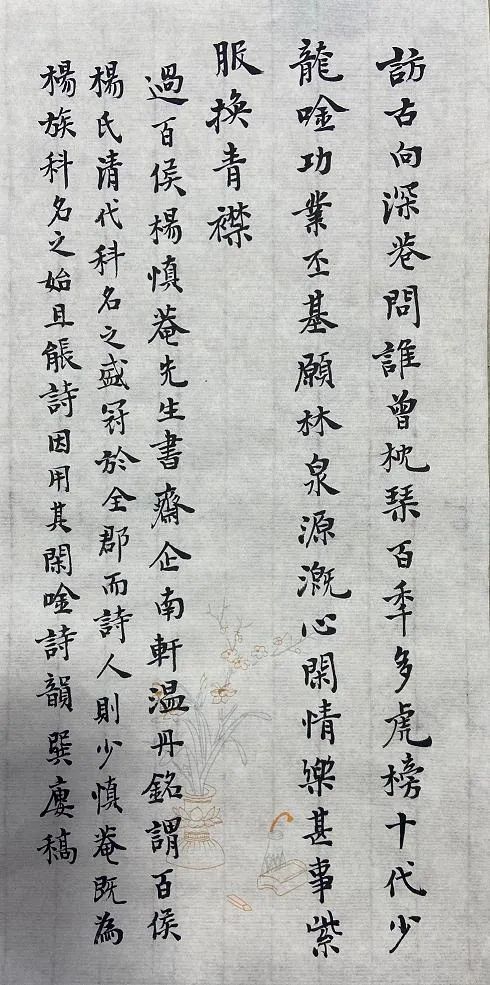 訪古向深巷問誰曾枕琴百年多虎榜十代少
龍唫功業丕基願林泉源溉心閑情樂甚事紫
服換青襟
過百侯楊慎菴先生書齋企南軒溫丹銘謂百侯
楊氏清代科名之盛冠於全郡而詩人則少慎菴既為
楊族科名之始且能詩因用其閑唫詩韻巽廔稿